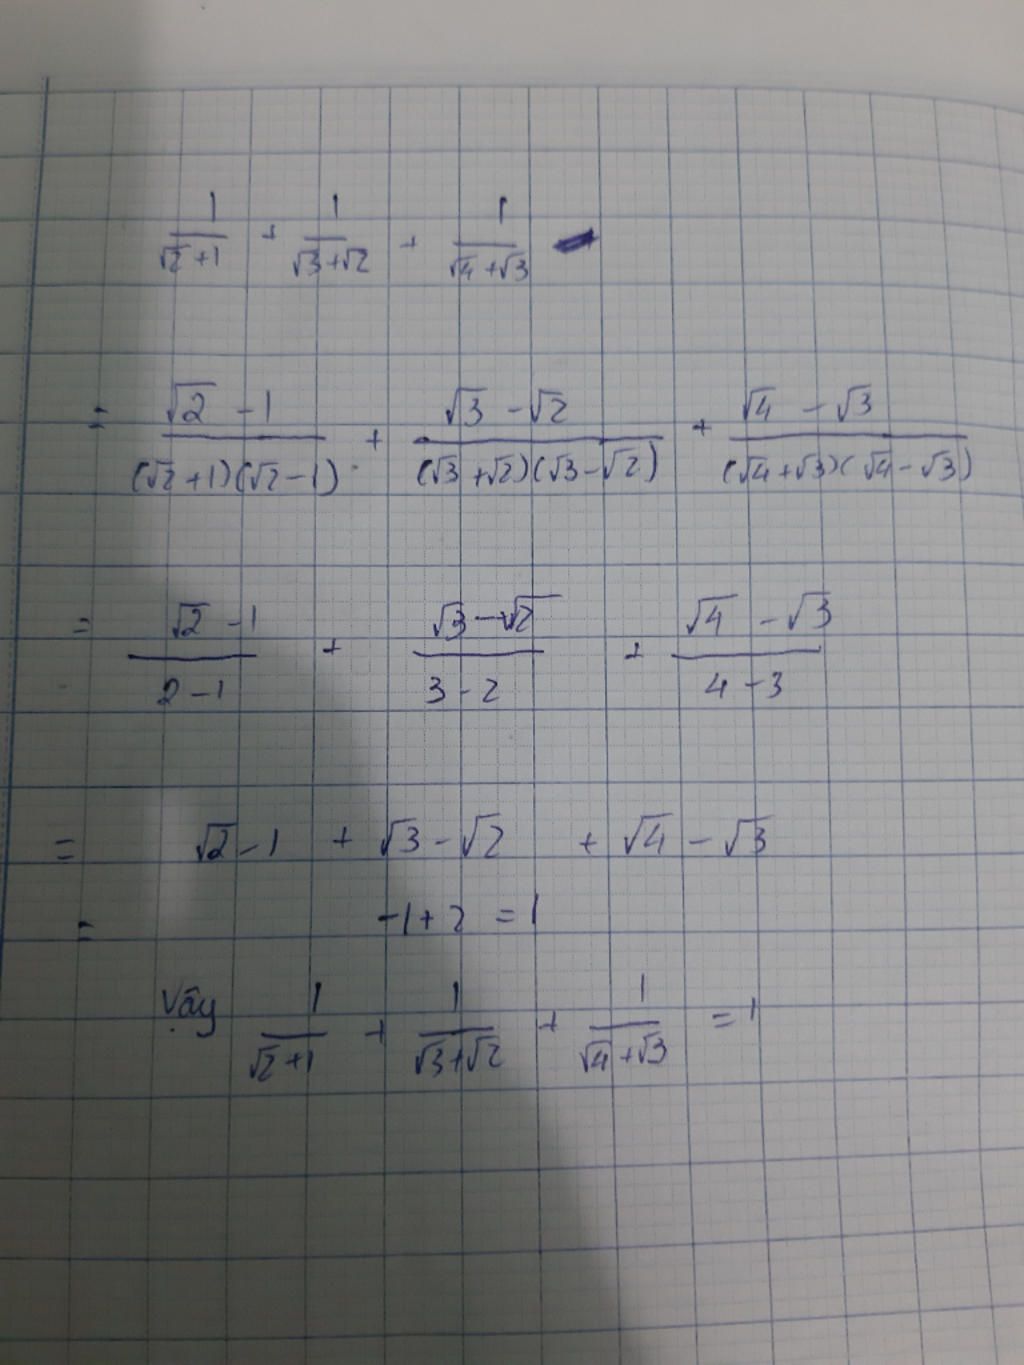 1/(√2+1) + 1/(√3+√2) + 1/(√4+√3)
= (√2 -1)/((√2+1)(√2-1)) + (√3-√2)/((√3+√2)(√3-√2)) + (√4-√3)/((√4+√3)(√4-√3))
= (√2-1)/(2-1) + (√3-√2)/(3-2) + (√4-√3)/(4-3)
= √2-1 + √3-√2 + √4-√3
= -1+2 = 1
Vậy 1/(√2+1) + 1/(√3+√2) + 1/(√4+√3) = 1